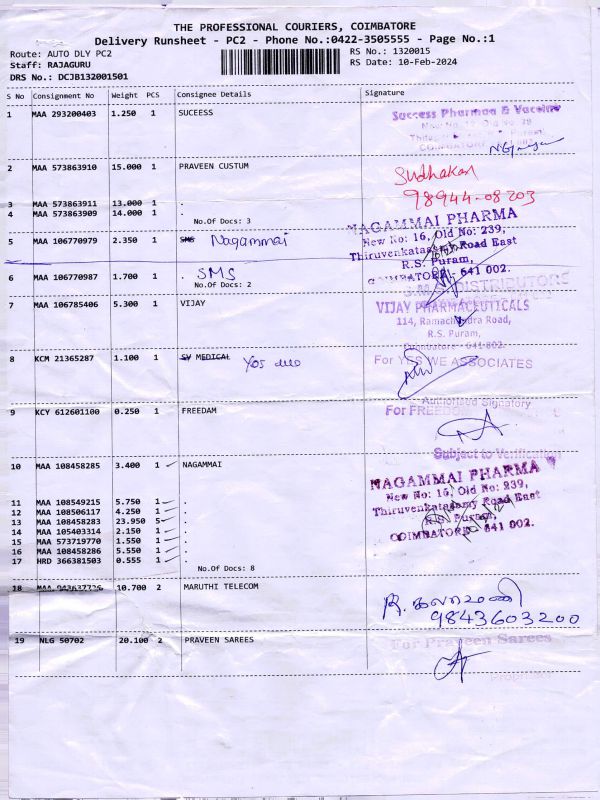 THE PROFESSIONAL COURIERS, COIMBATORE
Delivery Runsheet - PC2 - Phone No.:0422-3505555 - Page No.:1
Route: AUTO DLY PC2 RS No.: 1320015
Staff: RAJAGURU RS Date: 10-Feb-2024
DRS No.: DCJB132001501
S No Consignment No Weight PCS Consignee Details Signature
1 MAA 293200403 1.250 1 SUCEESS
Success Pharmaa & Vaccine
2 MAA 573863910 15.000 1 PRAVEEN CUSTUM
Sudhakar
98944-08203
3 MAA 573863911 13.000 1 .
4 MAA 573863909 14.000 1 .
No.Of Docs: 3
NAGAMMAI PHARMA
New No: 16, Old No: 239,
5 MAA 106770979 2.350 1 SMS Nagammai
Road East
R.S. Puram,
COIMBATORE - 641 002.
6 MAA 106770987 1.700 1 . SMS
No.Of Docs: 2
DISTRIBUTORS
7 MAA 106785406 5.300 1 VIJAY
VIJAY PHARMACEUTICALS
114, Ramachandra Road,
R.S. Puram,
8 KCM 21365287 1.100 1 SV MEDICAL
For YES WE ASSOCIATES
Authorised Signatory
9 KCY 612601100 0.250 1 FREEDAM
For
Subject to
10 MAA 108458285 3.400 1 NAGAMMAI
NAGAMMAI PHARMA
New No: 16, Old No: 239,
11 MAA 108549215 5.750 1 .
Thiruvenkatasamy Road East
12 MAA 108506117 4.250 1 .
R.S. Puram,
13 MAA 108458283 23.950 5 .
COIMBATORE - 641 002.
14 MAA 105403314 2.150 1 .
15 MAA 573719770 1.550 1 .
16 MAA 108458286 5.550 1 .
17 HRD 366381503 0.555 1 .
No.Of Docs: 8
18 MAA 10.700 2 MARUTHI TELECOM
R. கலாமணி
9843603200
19 NLG 50702 20.100 2 PRAVEEN SAREES
For Praveen Sarees